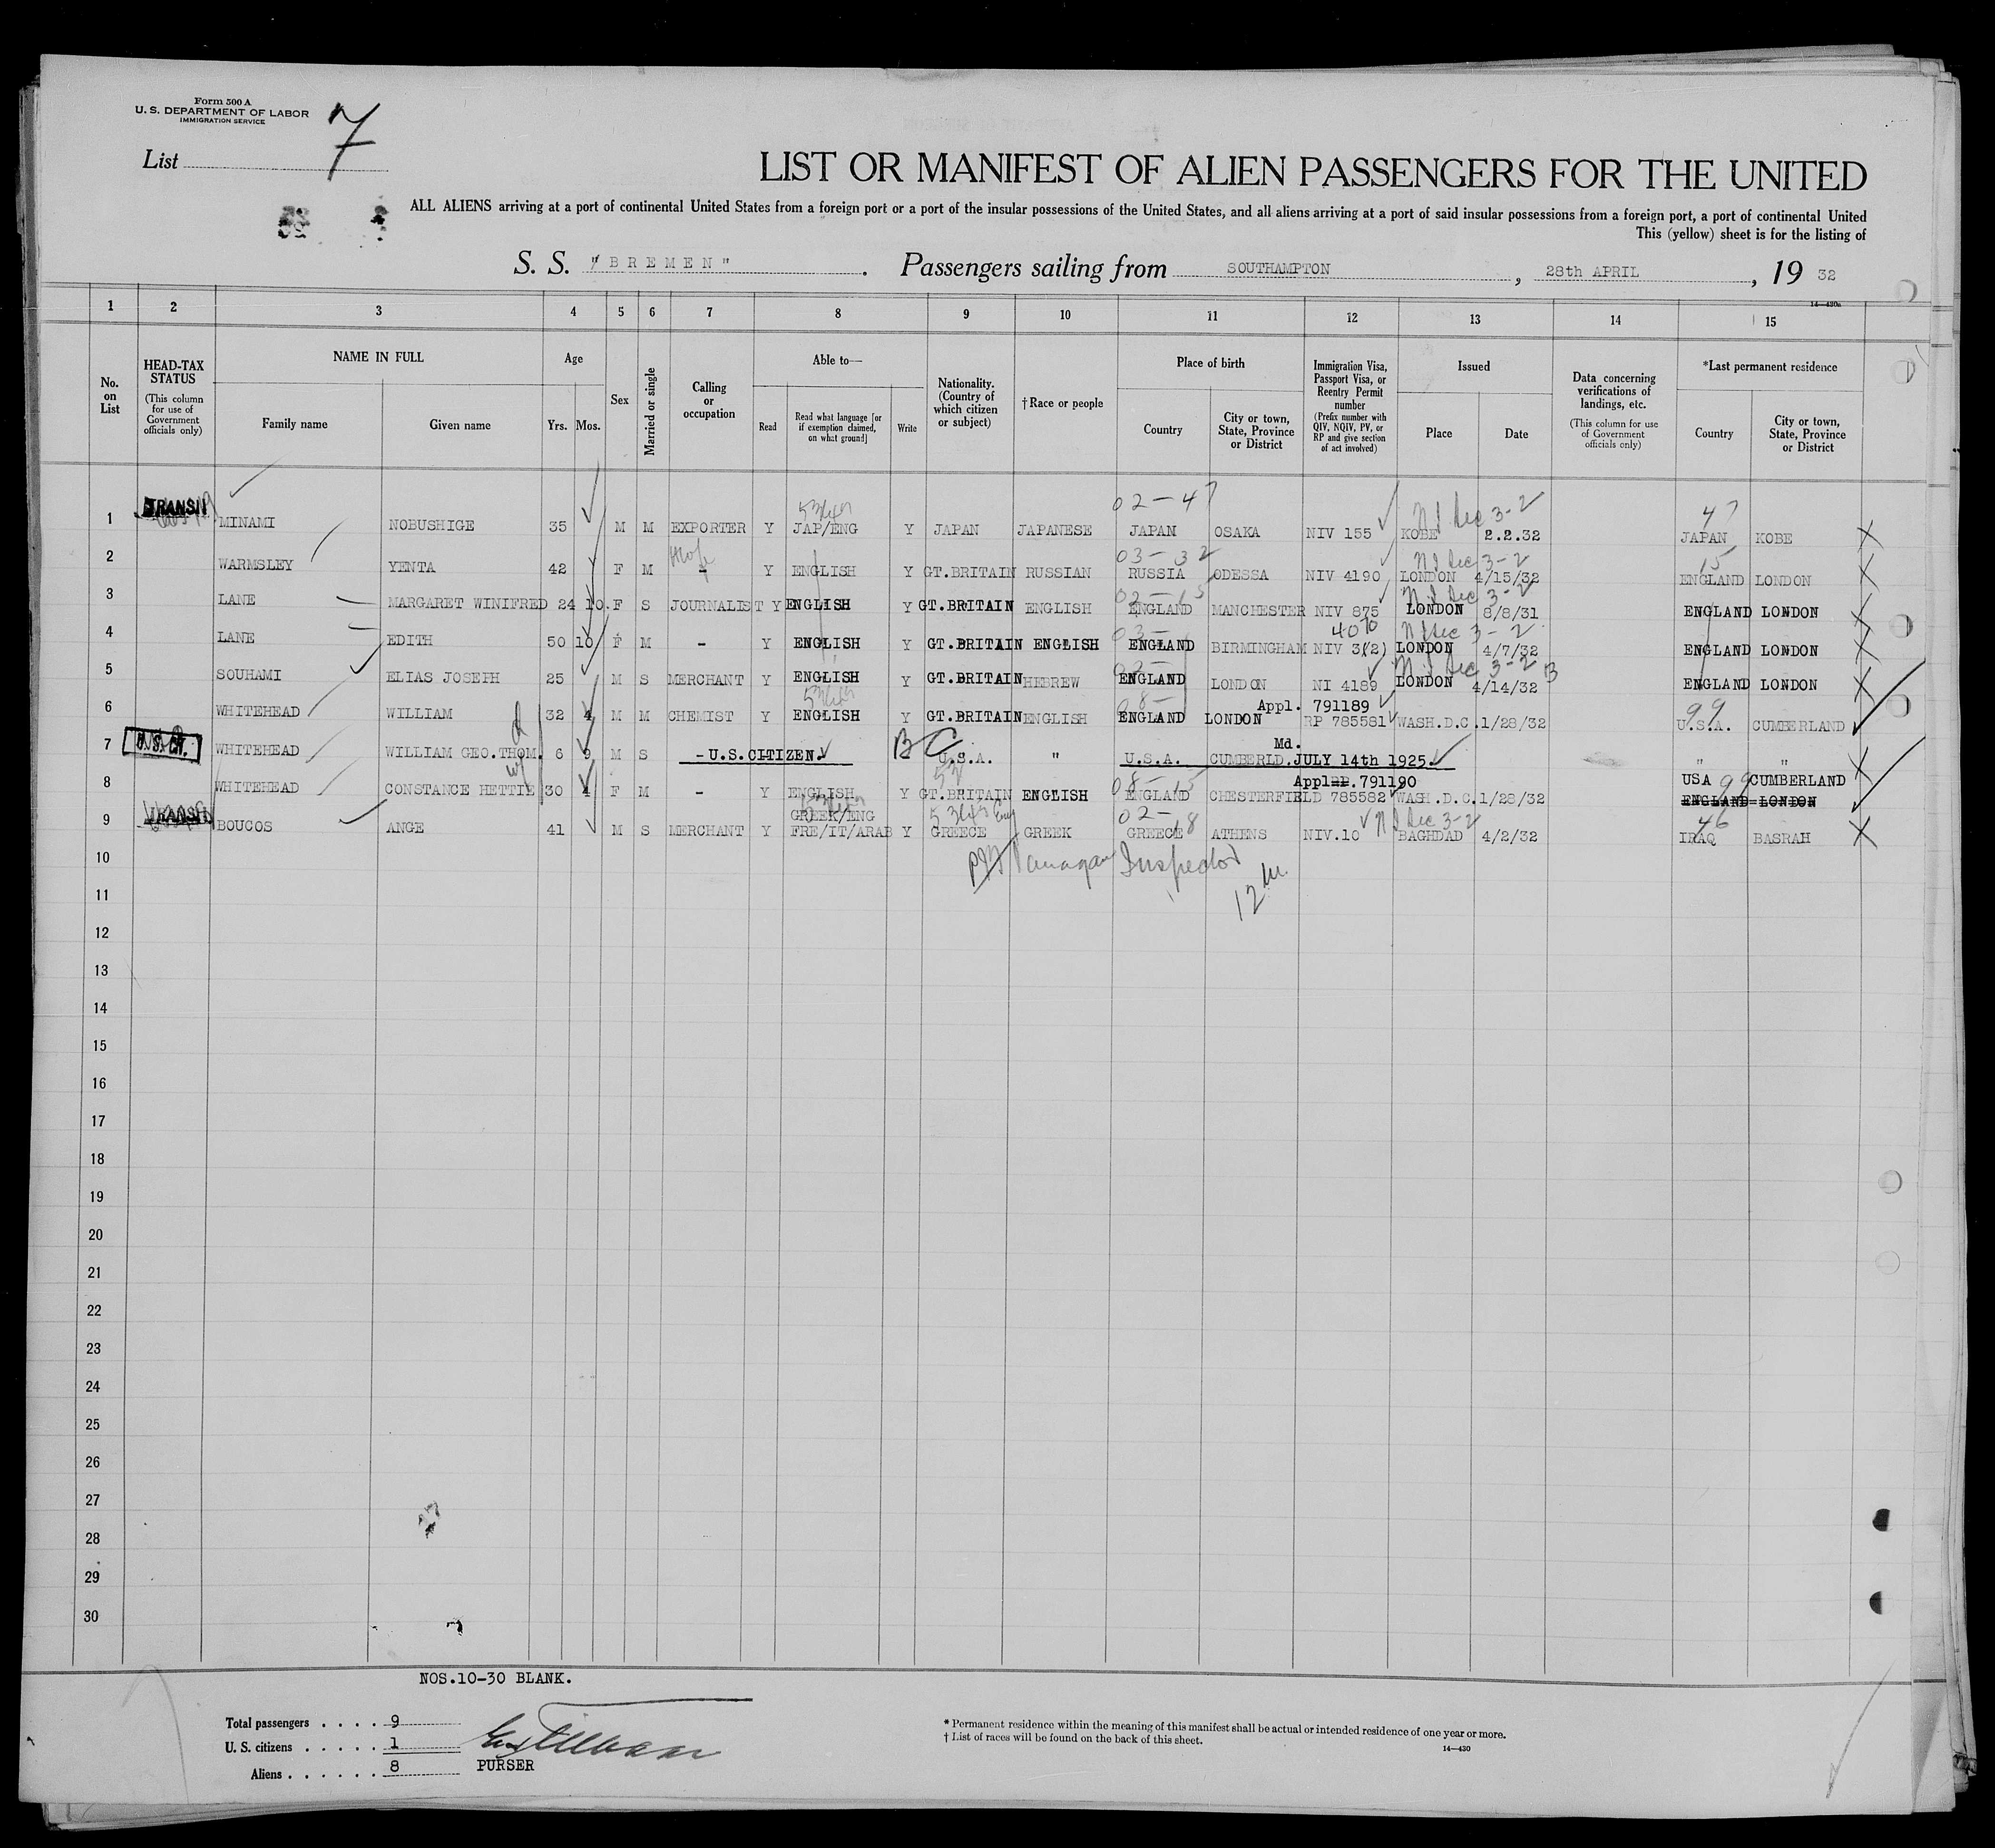 Form 500 A
U. S. DEPARTMENT OF LABOR
IMMIGRATION SERVICE
List 7
LIST OR MANIFEST OF ALIEN PASSENGERS FOR THE UNITED
ALL ALIENS arriving at a port of continental United States from a foreign port or a port of the insular possessions of the United States, and all aliens arriving at a port of said insular possessions from a foreign port, a port of continental United
This (yellow) sheet is for the listing of
S. S. "BREMEN". Passengers sailing from SOUTHAMPTON, 28th APRIL, 19 32
14—430a
1 2 3 4 5 6 7 8 9 10 11 12 13 14 15
No. on List
HEAD-TAX STATUS (This column for use of Government officials only)
NAME IN FULL
Family name Given name
Age
Yrs. Mos.
Sex
Married or single
Calling or occupation
Able to—
Read Read what language [or if exemption claimed, on what ground] Write
Nationality. (Country of which citizen or subject)
†Race or people
Place of birth
Country City or town, State, Province or District
Immigration Visa, Passport Visa, or Reentry Permit number (Prefix number with QIV, NQIV, PV, or RP and give section of act involved)
Issued
Place Date
Data concerning verifications of landings, etc. (This column for use of Government officials only)
*Last permanent residence
Country City or town, State, Province or District
02-47 N I Sec 3-2 47
1 TRANSIT MINAMI NOBUSHIGE 35 M M EXPORTER Y JAP/ENG Y JAPAN JAPANESE JAPAN OSAKA NIV 155 KOBE 2.2.32 JAPAN KOBE X
03-32 N I Sec 3-2 15
2 WARMSLEY YENTA 42 F M - Y ENGLISH Y GT.BRITAIN RUSSIAN RUSSIA ODESSA NIV 4190 LONDON 4/15/32 ENGLAND LONDON X
02-15 N I Sec 3-2
3 LANE MARGARET WINIFRED 24 10. F S JOURNALIST Y ENGLISH Y GT.BRITAIN ENGLISH ENGLAND MANCHESTER NIV 875 LONDON 8/8/31 ENGLAND LONDON X
03- 4070 N I Sec 3-2
4 LANE EDITH 50 10 F M - Y ENGLISH Y GT.BRITAIN ENGLISH ENGLAND BIRMINGHAM NIV 3(2) LONDON 4/7/32 ENGLAND LONDON X
02- N I Sec 3-2 B
5 SOUHAMI ELIAS JOSEPH 25 M S MERCHANT Y ENGLISH Y GT.BRITAIN HEBREW ENGLAND LONDON NI 4189 LONDON 4/14/32 ENGLAND LONDON X
08- Appl. 791189 99
6 WHITEHEAD WILLIAM 32 4 M M CHEMIST Y ENGLISH Y GT.BRITAIN ENGLISH ENGLAND LONDON RP 785581 WASH.D.C. 1/28/32 U.S.A. CUMBERLAND
Md.
7 U.S. CIT. WHITEHEAD WILLIAM GEO.THOM. 6 9 M S - U.S.CITIZEN. BC U.S.A. " U.S.A. CUMBERLD.JULY 14th 1925. " " X
08-15 Appl. RP. 791190 USA 99 CUMBERLAND
8 WHITEHEAD CONSTANCE HETTIE 30 4 F M - Y ENGLISH Y GT.BRITAIN ENGLISH ENGLAND CHESTERFIELD 785582 WASH.D.C. 1/28/32 ENGLAND LONDON
GREEK/ENG 02-18 N I Sec 3-2 46
9 TRANSIT BOUCOS ANGE 41 M S MERCHANT Y FRE/IT/ARAB Y GREECE GREEK GREECE ATHENS NIV.10 BAGHDAD 4/2/32 IRAQ BASRAH X
10 Inspector
11 12
12
13
14
15
16
17
18
19
20
21
22
23
24
25
26
27
28
29
30
NOS.10-30 BLANK.
Total passengers . . . . 9
U. S. citizens . . . . . 1
Aliens . . . . . . 8
PURSER
* Permanent residence within the meaning of this manifest shall be actual or intended residence of one year or more.
† List of races will be found on the back of this sheet.
14—430